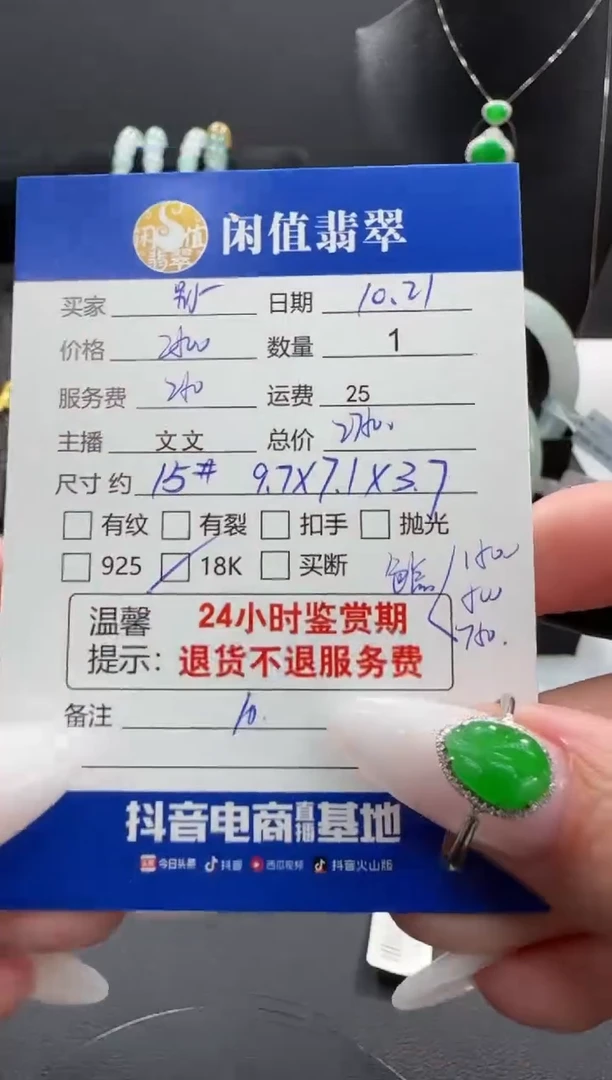 闲值翡翠
闲值翡翠
买家 日期 10.21
价格 数量 1
服务费 运费 25
主播 文文 总价
尺寸 约 15# 9.7X7.1X3.7
有纹 有裂 扣手 抛光
925 18K 买断
温馨提示： 24小时鉴赏期
退货不退服务费
备注 10.
抖音电商直播基地
今日头条 抖音 西瓜视频 抖音火山版